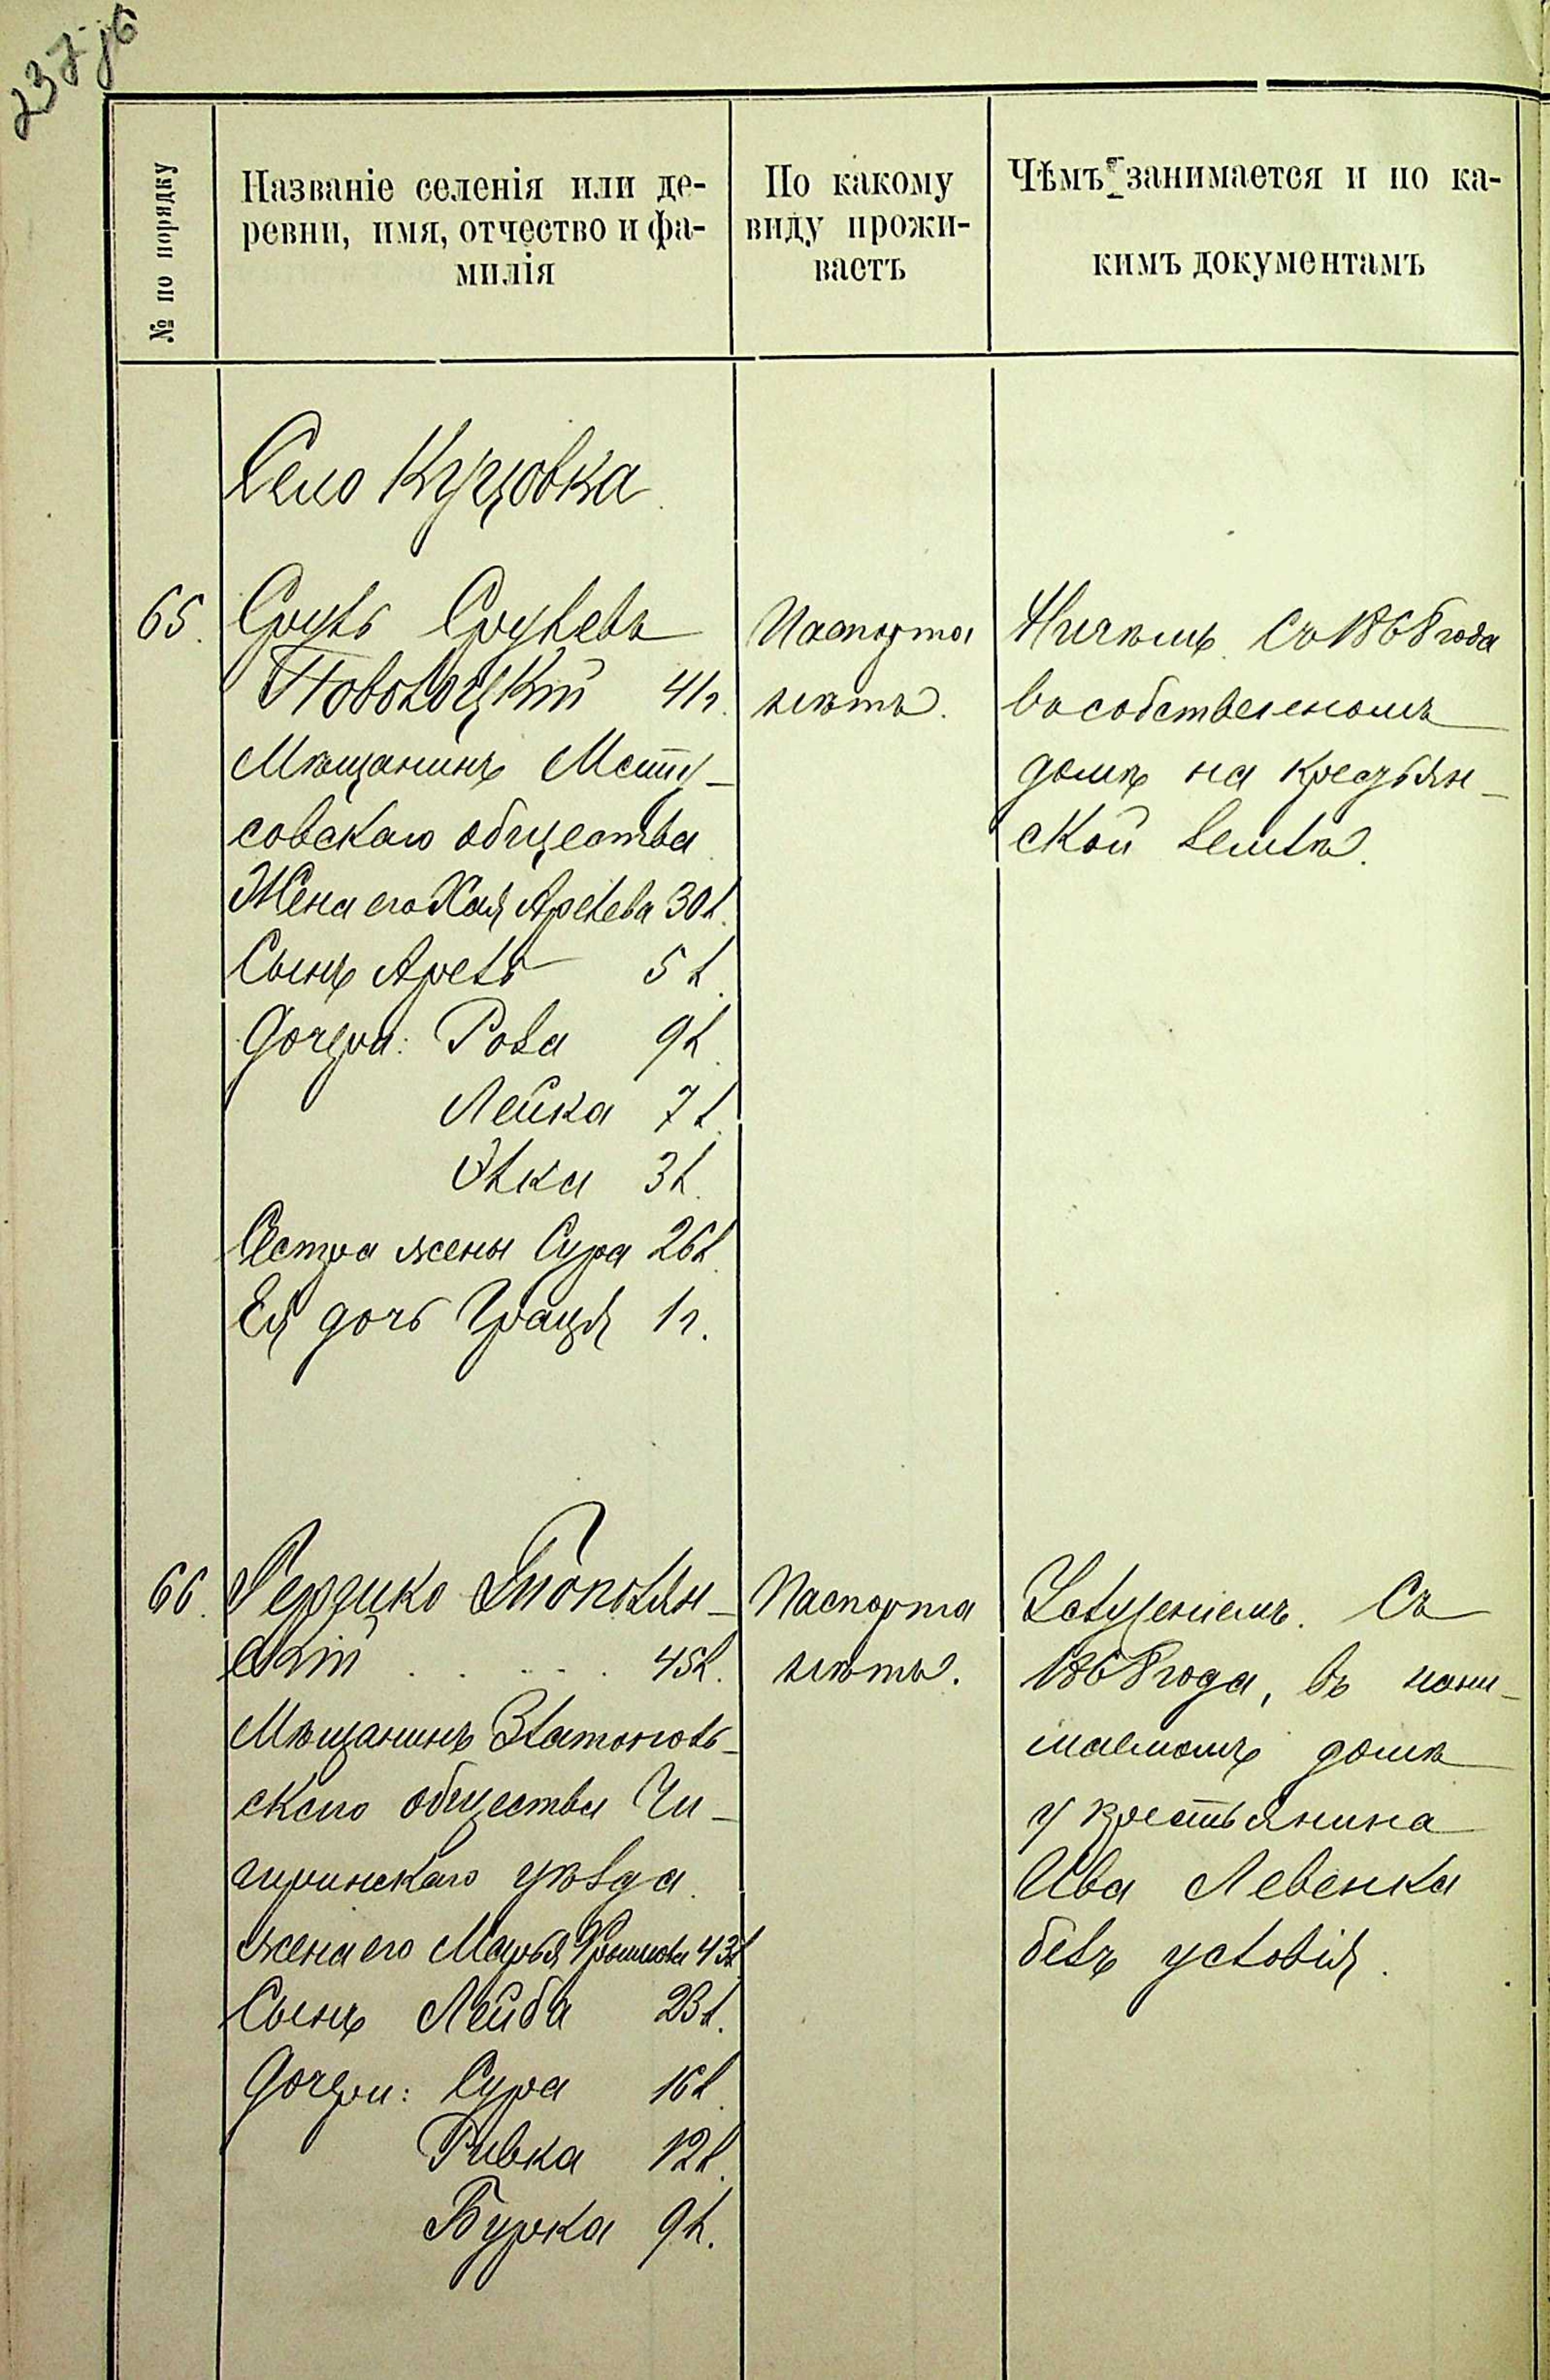 237 об
№ по порядку
Названіе селенія или де-
ревни, имя, отчество и фа-
милія
По какому
виду прожи-
ваетъ
Чѣмъ занимается и по ка-
кимъ документамъ
Село Куцовка
65.
Сруль Срулевъ
Поволоцкій 41 г.
Мѣщанинъ
совскаго общества
Жена его Хая Арелева 30 л.
Сынъ Арель 5 л.
Дочери: Роза 9 л.
Лейка 7 л.
Элка 3 л.
Сестра жены Сура 26 л.
Ея дочь 1 г.
Паспорта
нѣтъ.
Ничѣмъ. Съ 1868 года
въ собственномъ
домѣ на крестьян-
ской землѣ.
66.
Гершко Тополян-
скій . . . . . 45 л.
Мѣщанинъ Златополь-
скаго общества Чи-
гиринскаго уѣзда.
жена его Марья 43 л.
Сынъ Лейба 23 л.
Дочери: Сура 16 л.
Ривка 12 л.
Бурка 9 л.
Паспорта
нѣтъ.
Съ
1868 года, въ нани-
маемомъ домѣ
у крестьянина
Ива Левенка
безъ условія.